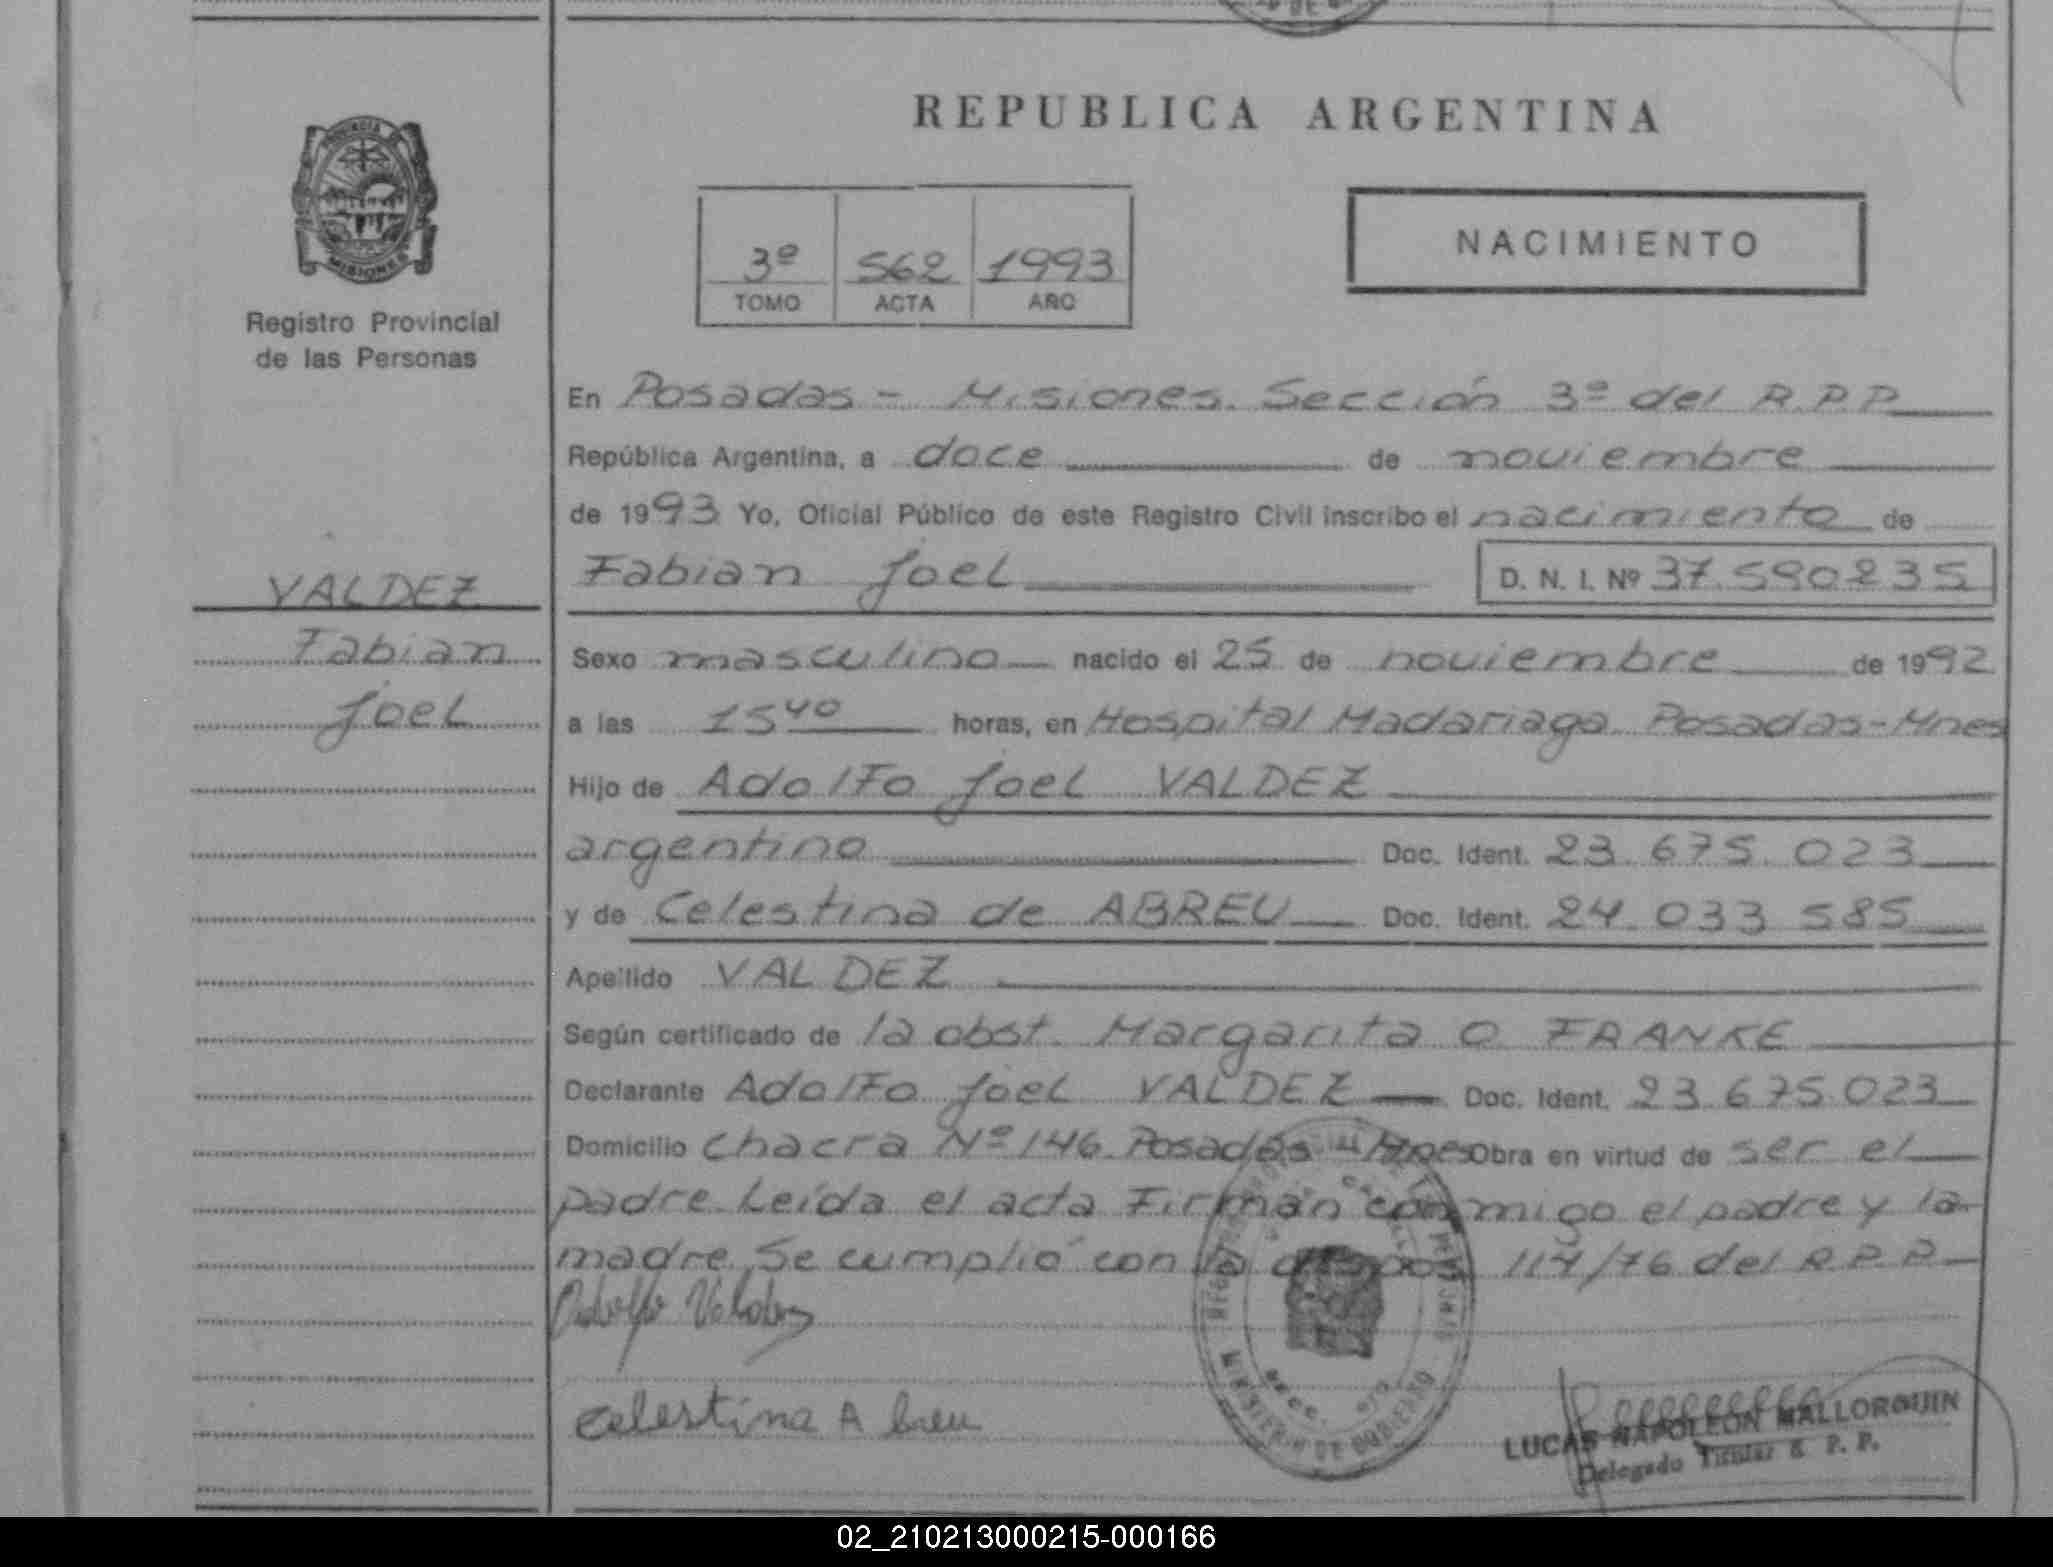 REPUBLICA ARGENTINA
PROVINCIA
MISIONES
Registro Provincial
de las Personas
3º 562 1993
TOMO ACTA AÑO
NACIMIENTO
En Posadas - Misiones. Sección 3º del R.P.P.
República Argentina, a doce de noviembre
de 1993 Yo, Oficial Público de este Registro Civil inscribo el nacimiento de
Fabian Joel D. N. I. Nº 37.590235
VALDEZ
Fabian
Joel
Sexo masculino nacido el 25 de noviembre de 1992
a las 15 40 horas, en Hospital Madariaga. Posadas-Mnes
Hijo de Adolfo Joel VALDEZ
argentino Doc. Ident. 23.675.023
y de Celestina de ABREU Doc. Ident. 24.033 585
Apellido VALDEZ
Según certificado de la obst. Margarita O. FRANKE
Declarante Adolfo Joel VALDEZ Doc. Ident. 23.675.023
Domicilio Chacra Nº 146. Posadas - Mnes Obra en virtud de ser el
padre. Leída el acta Firman conmigo el padre y la
madre. Se cumplió con la dispos. 114/76 del R.P.P.
Adolfo Valdez
Celestina Abreu
MINISTERIO DE GOBIERNO
LUCAS NAPOLEON MALLORQUIN
Delegado Titular R. P. P.
02_210213000215-000166